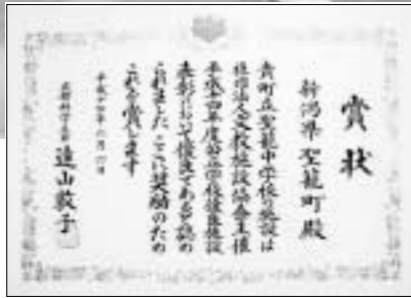 賞状
新潟県聖籠町殿
貴町立聖籠中学校の施設は
社団法人文教施設協会主催
平成十四年度公立学校優良施設
表彰において優良であると認め
られました ここに奨励のため
これを賞します
文部科学大臣 遠山敦子